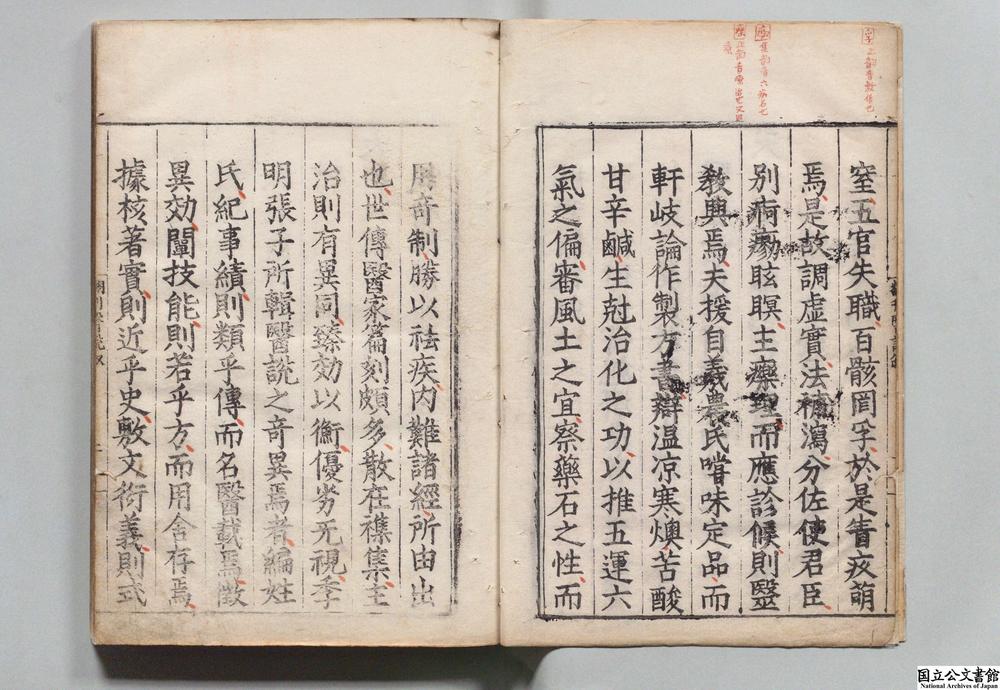 窒五官失職百骸罔孚於是眚疫萌
焉是故調虛實法補瀉分佐使君臣
別痾瘍眩瞑主療理而應診候則毉
教興焉夫援自義農氏嘗味定品而
軒岐論作製方書辯温凉寒燠苦酸
甘辛鹹生尅治化之功以推五運六
氣之偏審風土之宜察藥石之性而
用奇制勝以祛疾内難諸經所由出
也世傳醫家篇刻頗多散在襍集主
治則有異同臻効以衡優劣无視季
明張子所輯醫說之奇異焉者編姓
氏紀事績則類乎傳而名醫載焉徵
異効闡技能則若乎方而用舍存焉
據核著實則近乎史敷文衍義則式
国立公文書館
National Archives of Japan